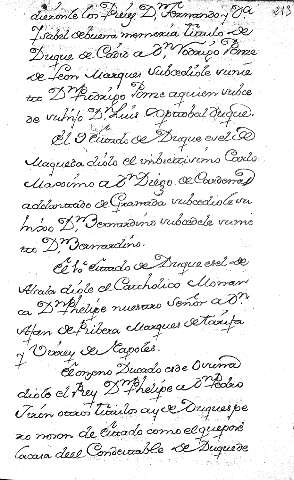 213
dieronle los Reyes Dn. Fernando y Da.
Isabel de buena memoria titulo de
Duque de Cadiz a Dn. Rodrigo Ponce
de Leon Marques subcediole su nie
to Dn. Rodrigo Ponce a quien subce
de su hijo Dn. Luis Duque.
El 9 Estado de Duque es el de
Maqueda diolo el imbictisimo Carlo
Maximo a Dn. Diego de Cardenas
adelantado de Granada subcediole su
hijo Dn. Bernardino subcedele su nie
to Dn. Bernardino.
El 10 Estado de Duque es el de
Alcala diolo el Catholico Monar
ca Dn. Phelipe nuestro Señor a Dn.
Afan de Ribera Marques de tarifa
y Virrey de Napoles.
El onzeno Ducado es de Osuna
diolo el Rey Dn. Phelipe a Dn. Pedro
Jiron otros titulos ay de Duques pe
ro no son de Estado como el que pone
la casa del Condestable de Duque de